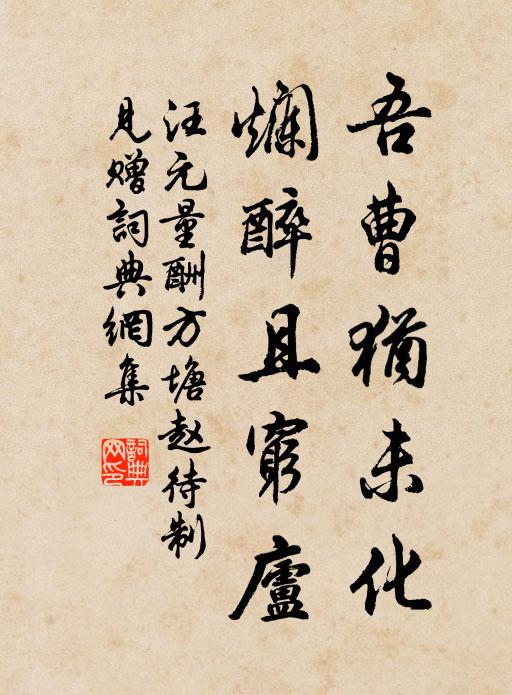 吾曹犹未化
烂醉且穷庐
汪元量酬方塘赵待制
见赠詞典網集
詞典网印